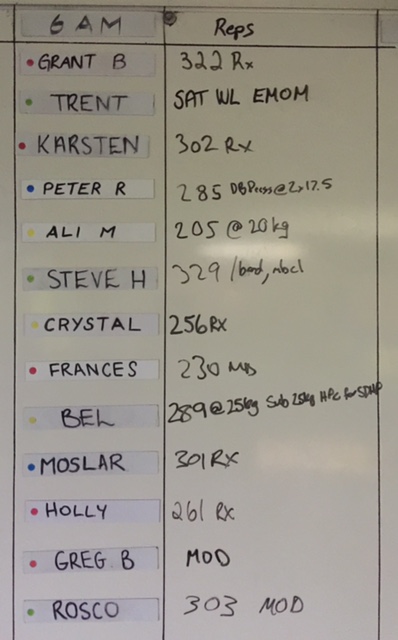 6 AM Reps
GRANT B 322 Rx
TRENT SAT WL EMOM
KARSTEN 302 Rx
PETER R 285 DB Press @ 2x17.5
ALI M 205 @ 20kg
STEVE H 329 /band,
CRYSTAL 256 RX
FRANCES 230
BEL 289 @ 25kg Sub 25kg HPC for SDHP
MOSLAR 301 RX
HOLLY 261 RX
GREG B MOD
ROSCO 303 MOD